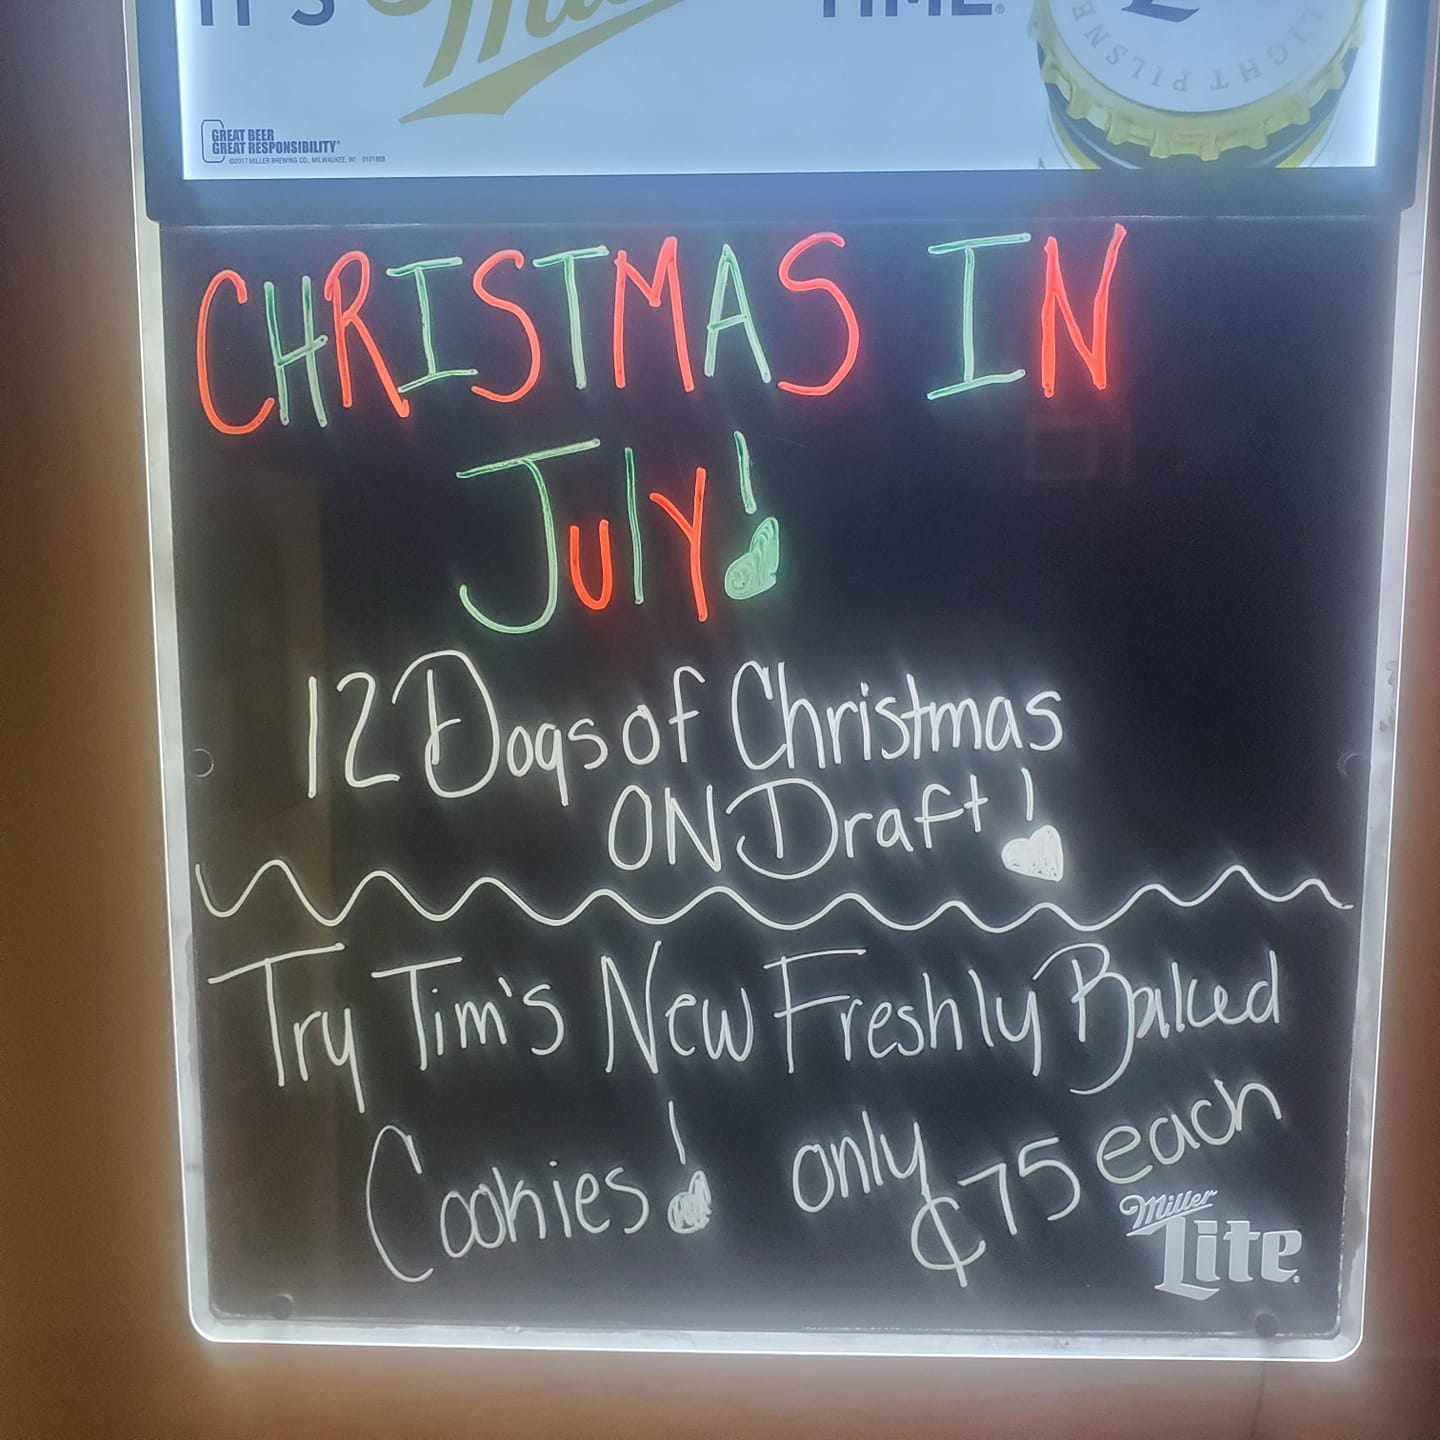 IT'S Miller TIME®
LIGHT PILSNE
GREAT BEER
GREAT RESPONSIBILITY®
©2017 MILLER BREWING CO., MILWAUKEE, WI 0101808
CHRISTMAS IN
July!
12 Dogs of Christmas
ON Draft!
Try Tim's New Freshly Baked
Cookies! only ¢75 each
Miller
Lite